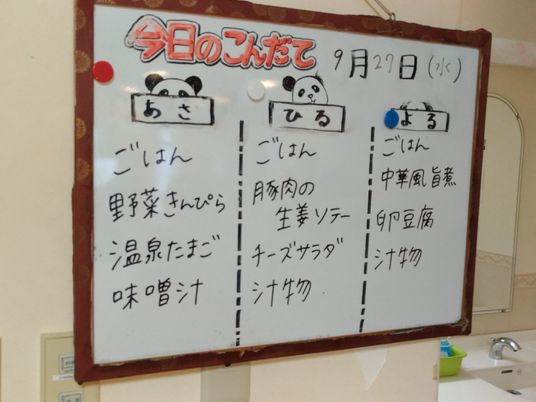 今日のこんだて
9月27日(水)
あさ
ごはん
野菜きんぴら
温泉たまご
味噌汁
ひる
ごはん
豚肉の
生姜ソテー
チーズサラダ
汁物
よる
ごはん
中華風旨煮
卵豆腐
汁物